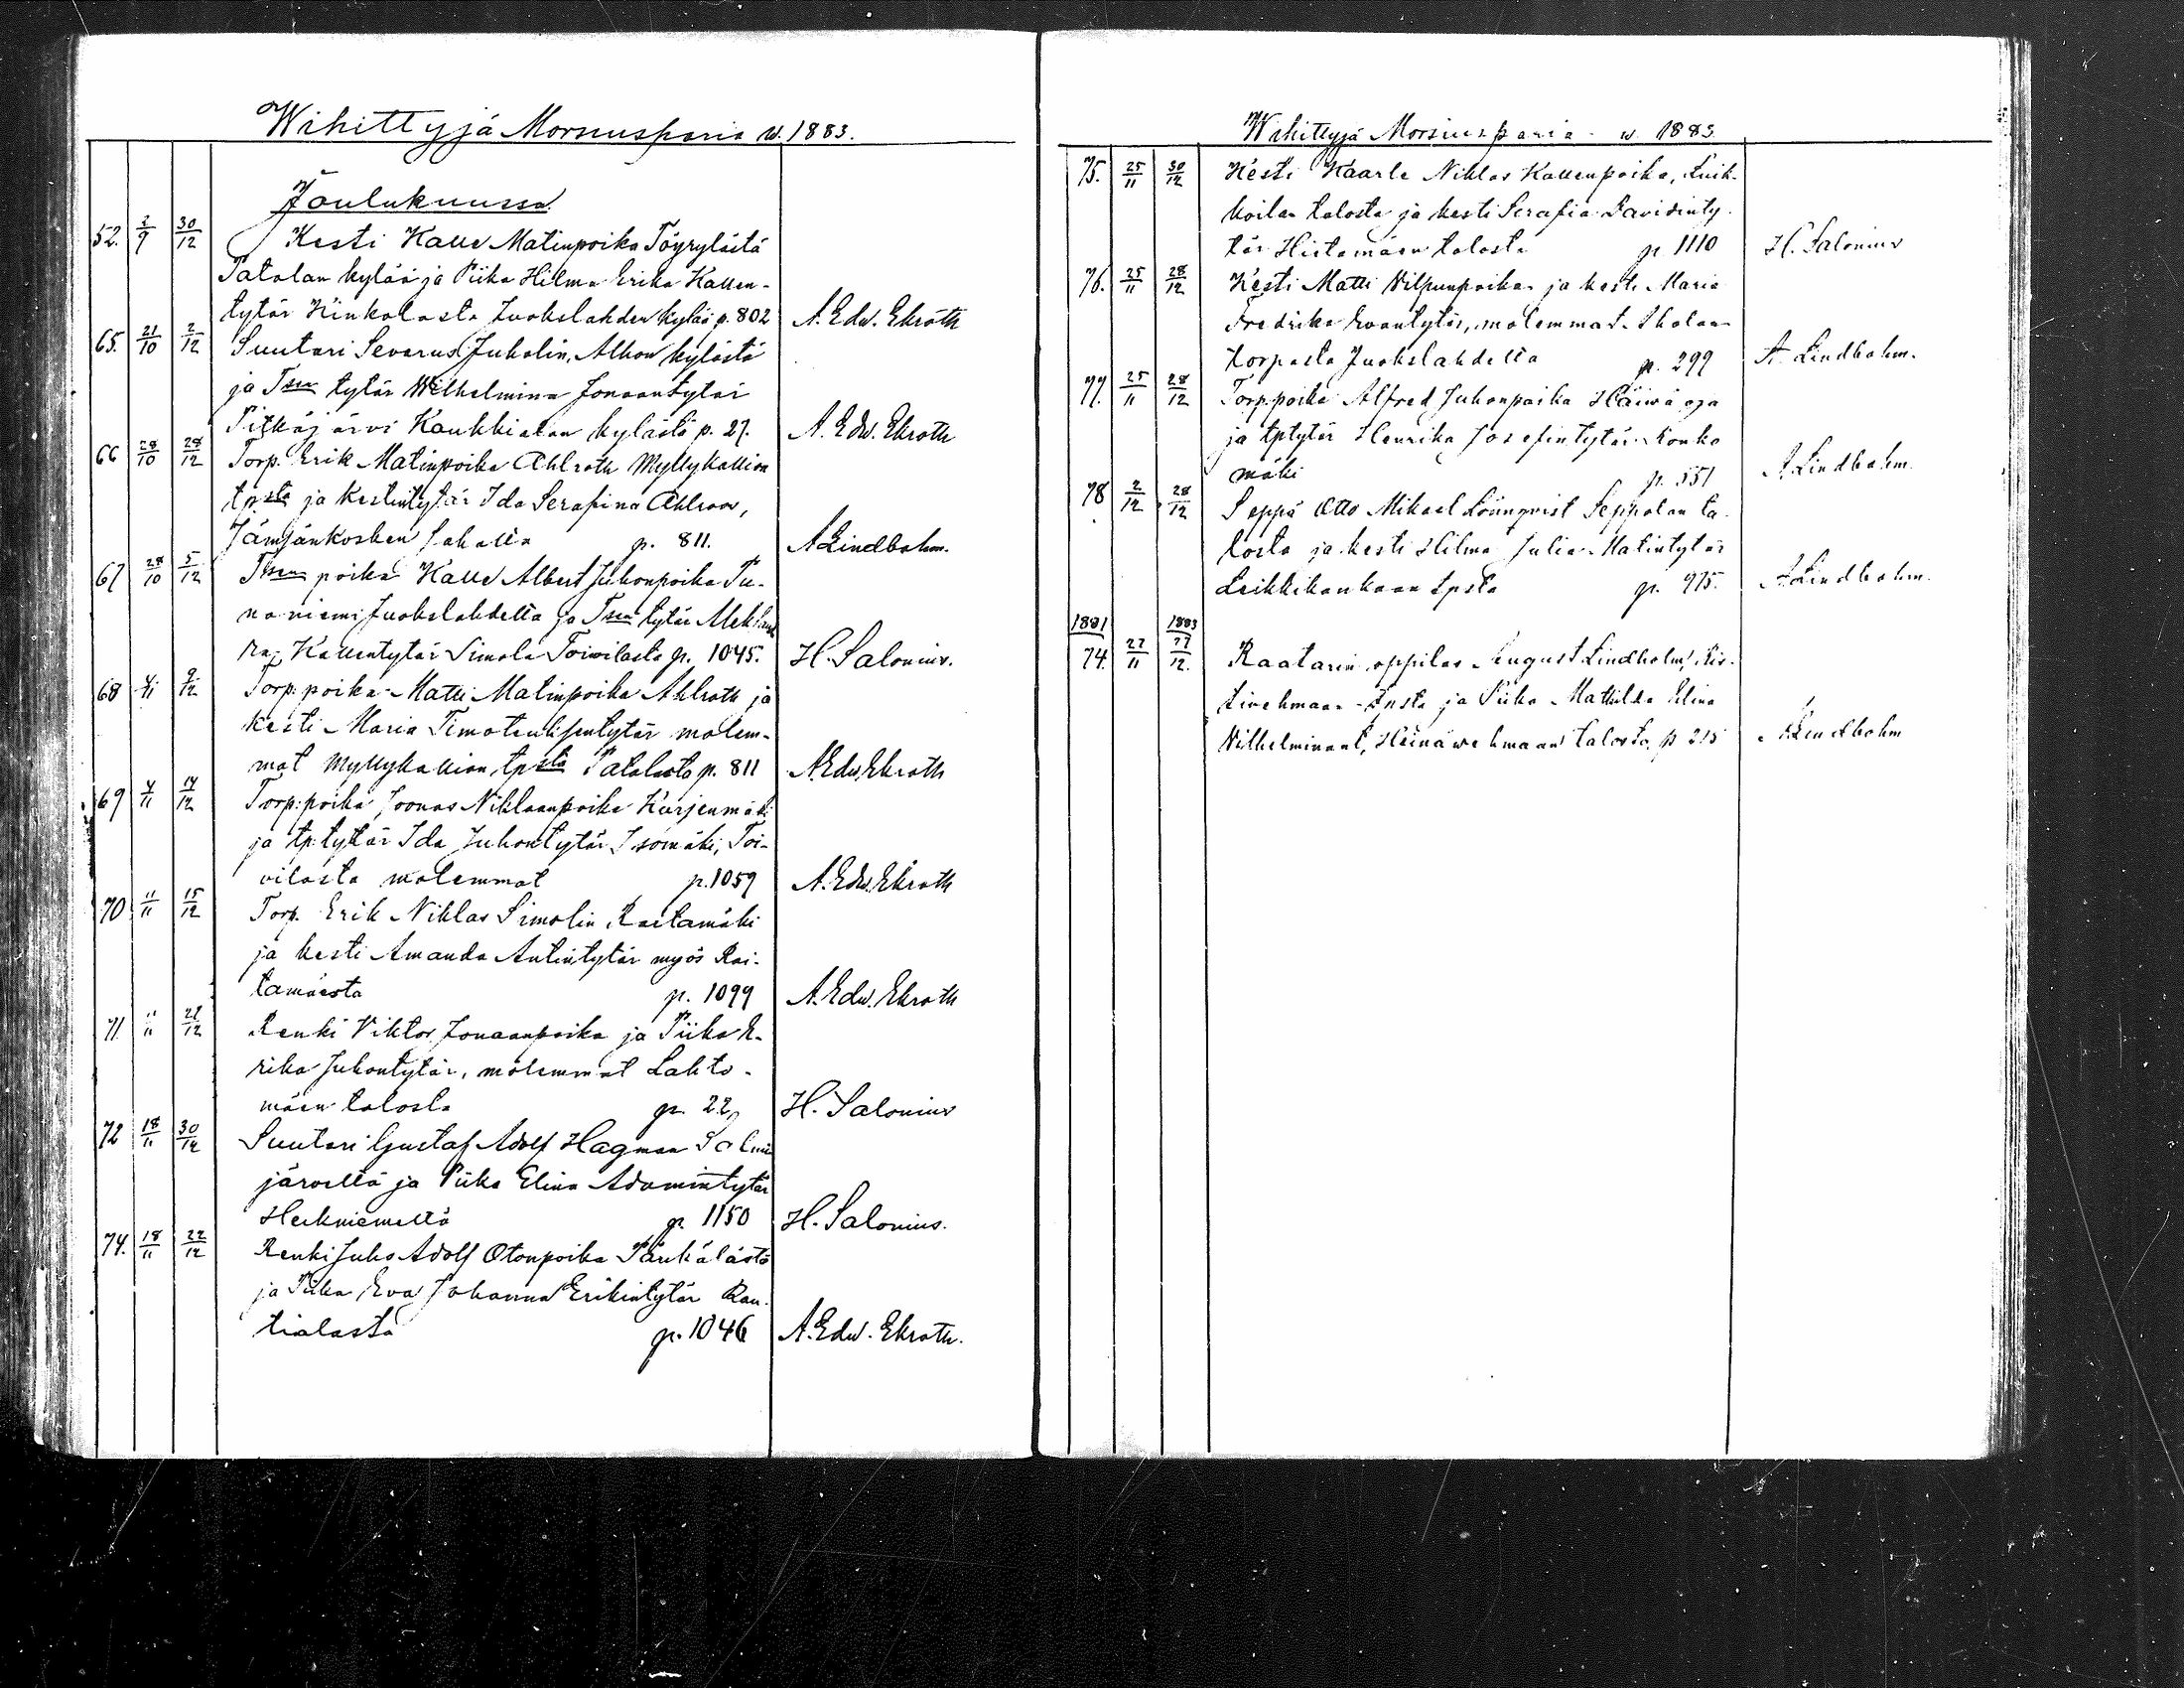 Wihittyjä Morsiusparia w. 1883.
Joulukuussa
52. 2/9 30/12 Kesti Kalle Matinpoika Töyrylästä
Patalan kylää ja Piika Hilma Erika Kallen-
tytär Hinkolasta Juokslahden kylää p. 802 A. Edw. Ekroth
65. 21/10 2/12 Suutari Severus Juholin, Alhon kylästä
ja Tsen tytär Wilhelmina Jonaantytär
Pitkäjärvi Kaukkialan kylästä p. 27. A. Edw. Ekroth
66 28/10 28/12 Torp. Erik Matinpoika Ahlroth Myllykallion
tp.sta ja Kestintytär Ida Serafina Ahlroos,
Jämsänkosken sahalla p. 811. A Lindbohm.
67 28/10 5/12 Tsen poika Kalle Albert Juhonpoika
niemi Juokslahdella ja Tsen tytär
ra Kallentytär Simola Toivilasta p. 1045. H. Salonius.
68 4/11 9/12 Torp: poika Matti Matinpoika Ahlroth ja
Kesti Maria Timoteuksentytär molem-
mat Myllykallion tpsta Patalasta p. 811 A. Edw. Ekroth
69 4/11 14/12 Torp: poika Joonas Niklaanpoika Kurjenmäki
ja tp.tytär Ida Juhontytär Isomäki, Toi-
vilasta molemmat p. 1059 A. Edw. Ekroth
70 11/11 15/12 Torp. Erik Niklas Simolin Raitamäki
ja kesti Amanda Antintytär myös Rai-
tamäestä p. 1099 A. Edw. Ekroth
71. 11/11 21/12 Renki Viktor Jonaanpoika ja Piika E-
rika Juhontytär, molemmat Lahto-
mäen talosta p. 22 H. Salonius
72 18/11 30/12 Suutari Gustaf Adolf Hagman Salmi
järveltä ja Piika Elina Adamintytär
Herkniemeltä p. 1150 H. Salonius.
74. 18/11 22/12 Renki Juho Adolf Otonpoika Pänkälästä
ja Piika Eva Johanna Erikintytär Rau-
tialasta p. 1046 A. Edw. Ekroth.
Wihittyjä Morsiusparia w. 1883.
75. 25/11 30/12 Kesti Kaarle Niklas Kallenpoika, Luik-
koilan talosta ja kesti Serafia Davidinty-
tär Hietamäen talosta p 1110 H. Salonius
76. 25/11 28/12 Kesti Matti Vilpunpoika ja kesti Maria
Fredrika Evantytär, molemmat
Korpasta Juokslahdella p. 299 A. Lindbohm.
77. 25/11 28/12 Torp.poika Alfred Juhonpoika Häiwäoja
ja tptytär Henrika Josefintytär Konko
mäki p. 551 A. Lindbohm.
78 2/12 28/12 Seppä Otto Mikael Lönnqvist Seppolan ta-
losta ja kesti Hilma Julia Matintytär
Leikkikankaan tpsta p. 975. A Lindbohm.
1881 1883
74. 27/11 27/12. Raatarin oppilas August Lindholm, Ris-
ja Piika Mathilda Elina
Vilhelminant, Heinäwehmaan talosta, p 215 A Lindbohm